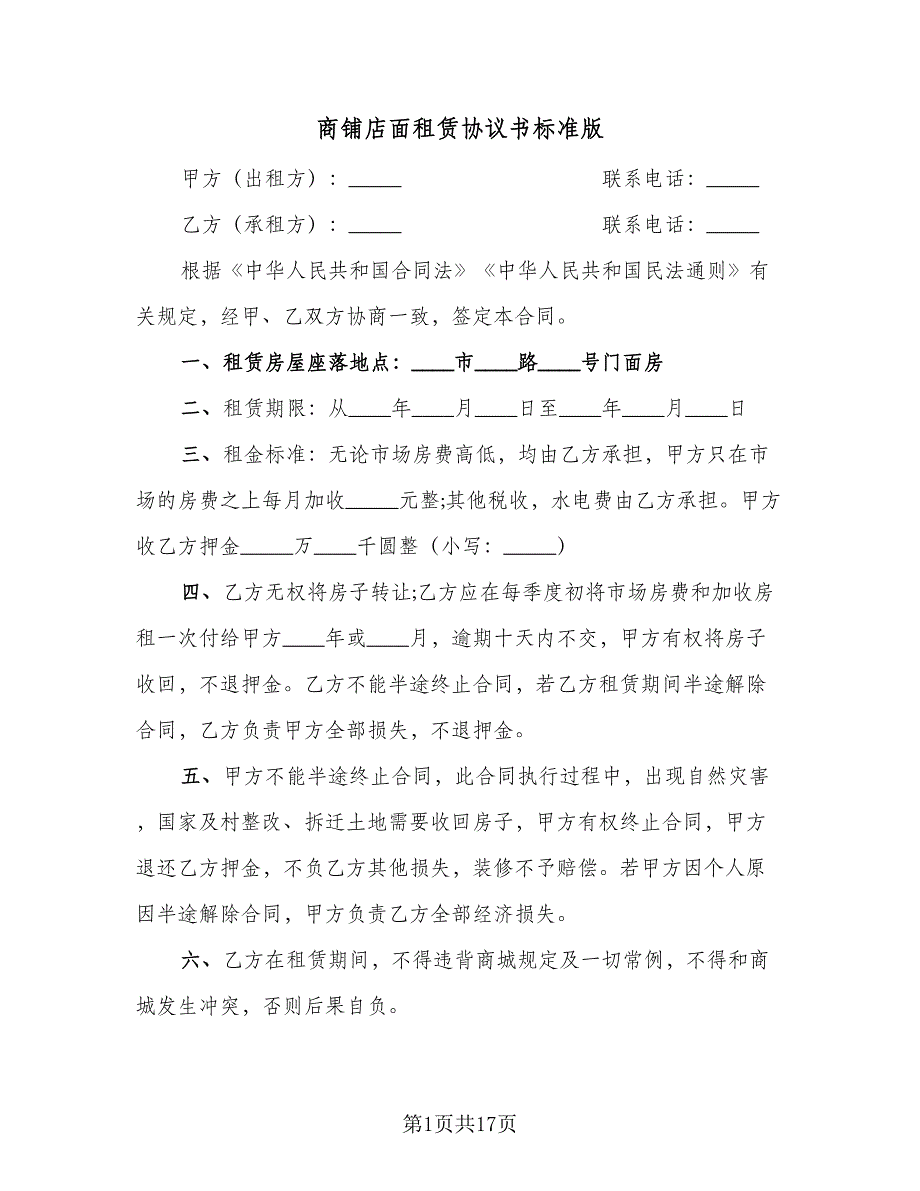 商铺店面租赁协议书标准版
甲方（出租方）：_____ 联系电话：_____
乙方（承租方）：_____ 联系电话：_____
根据《中华人民共和国合同法》《中华人民共和国民法通则》有
关规定，经甲、乙双方协商一致，签定本合同。
一、租赁房屋座落地点：____市____路____号门面房
二、租赁期限：从____年____月____日至____年____月____日
三、租金标准：无论市场房费高低，均由乙方承担，甲方只在市
场的房费之上每月加收_____元整;其他税收，水电费由乙方承担。甲方
收乙方押金_____万____千圆整（小写：_____）
四、乙方无权将房子转让;乙方应在每季度初将市场房费和加收房
租一次付给甲方____年或____月，逾期十天内不交，甲方有权将房子
收回，不退押金。乙方不能半途终止合同，若乙方租赁期间半途解除
合同，乙方负责甲方全部损失，不退押金。
五、甲方不能半途终止合同，此合同执行过程中，出现自然灾害
，国家及村整改、拆迁土地需要收回房子，甲方有权终止合同，甲方
退还乙方押金，不负乙方其他损失，装修不予赔偿。若甲方因个人原
因半途解除合同，甲方负责乙方全部经济损失。
六、乙方在租赁期间，不得违背商城规定及一切常例，不得和商
城发生冲突，否则后果自负。
第1页共17页